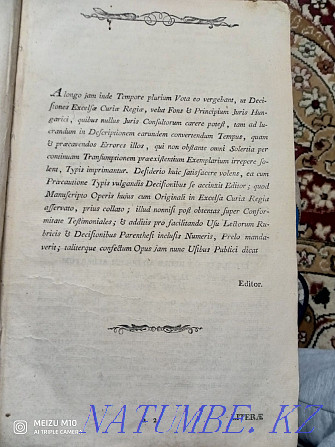 A longo jam inde Tempore plurium Vota eo vergebant, ut Deci-
siones Excelsæ Curiæ Regiæ, velut Fons & Principium Juris Hun-
garici, quibus nullus Juris Consultorum carere potest, tam ad lu-
crandum in Descriptionem earundem convertendum Tempus, quam
& præcavendos Errores illos, qui non obstante omni Solertia per
continuam Transumptionem præexistendium Exemplarium irrepere so-
lent, Typis imprimantur. Desiderio huic satisfacere volens, ea cum
Præcautione Typis vulgandis Decisionibus se accinxit Editor; quod
Manuscripto Operis hujus cum Originali in Excelsa Curia Regia
asservato, prius collato; illud nonnisi post obtentas super Confor-
mitate Testimoniales; & additis pro facilitando Usu Lectorum Ru-
bricis & Decisionibus Parenthesi inclusis Numeris, Prelo manda-
verit; taliterque confectum Opus jam nunc Usibus Publici dicat
Editor.
LITERÆ
MEIZU M10
AI TRIPLE CAMERA
NATUMBE.KZ